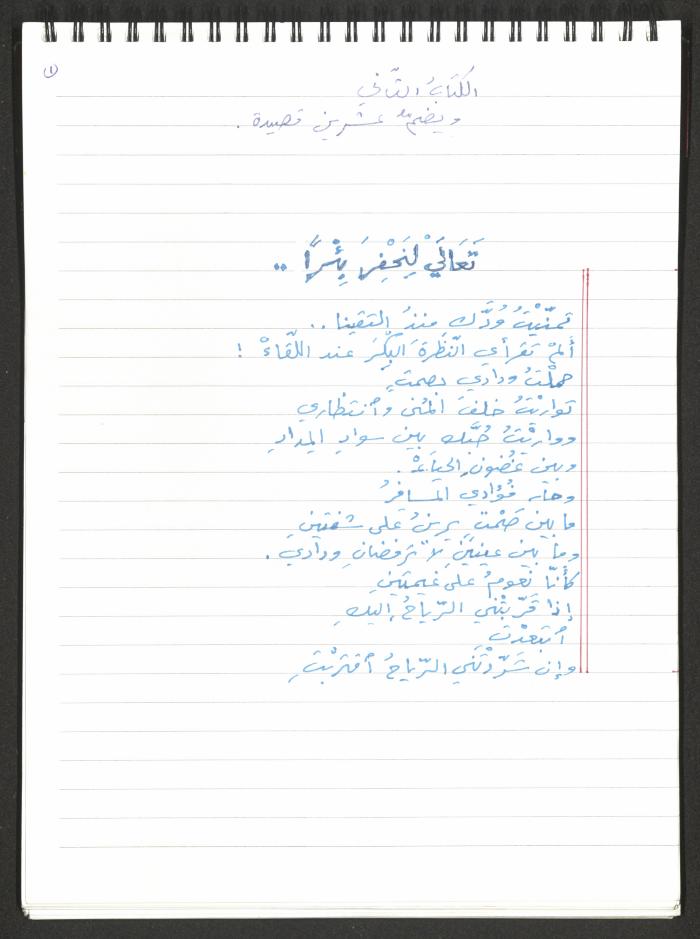 ①
الكتابُ الثّاني
ويضمّ عشرين قصيدة .
تَعَالَيْ لِنَحْفِرَ بِئْرًا ..
تمنّيْتُ وُدَّك منذُ التقينا ..
أَلَمْ تقرأي النّظرةَ البِكْرَ عند اللّقاءْ !
حملْتُ ودادي بصمتٍ
توارَيْتُ خلفَ المُنى وٱنتظاري
وواريْتُ حُبَّك بين سوادِ المِدادِ
وبين غُضونِ الحياءْ .
وحار فُؤادي المسافرُ
ما بين صَمْتٍ يرينُ على شفتينِ
وما بين عينينِ لا ترفضانِ ودادي .
كأنّا نعومُ على غيمتينِ
إذا قرّبتْني الرّياحُ إليكِ
ٱبتعدْتِ
وإن شَرّدتْني الرّياحُ ٱقتربْتِ